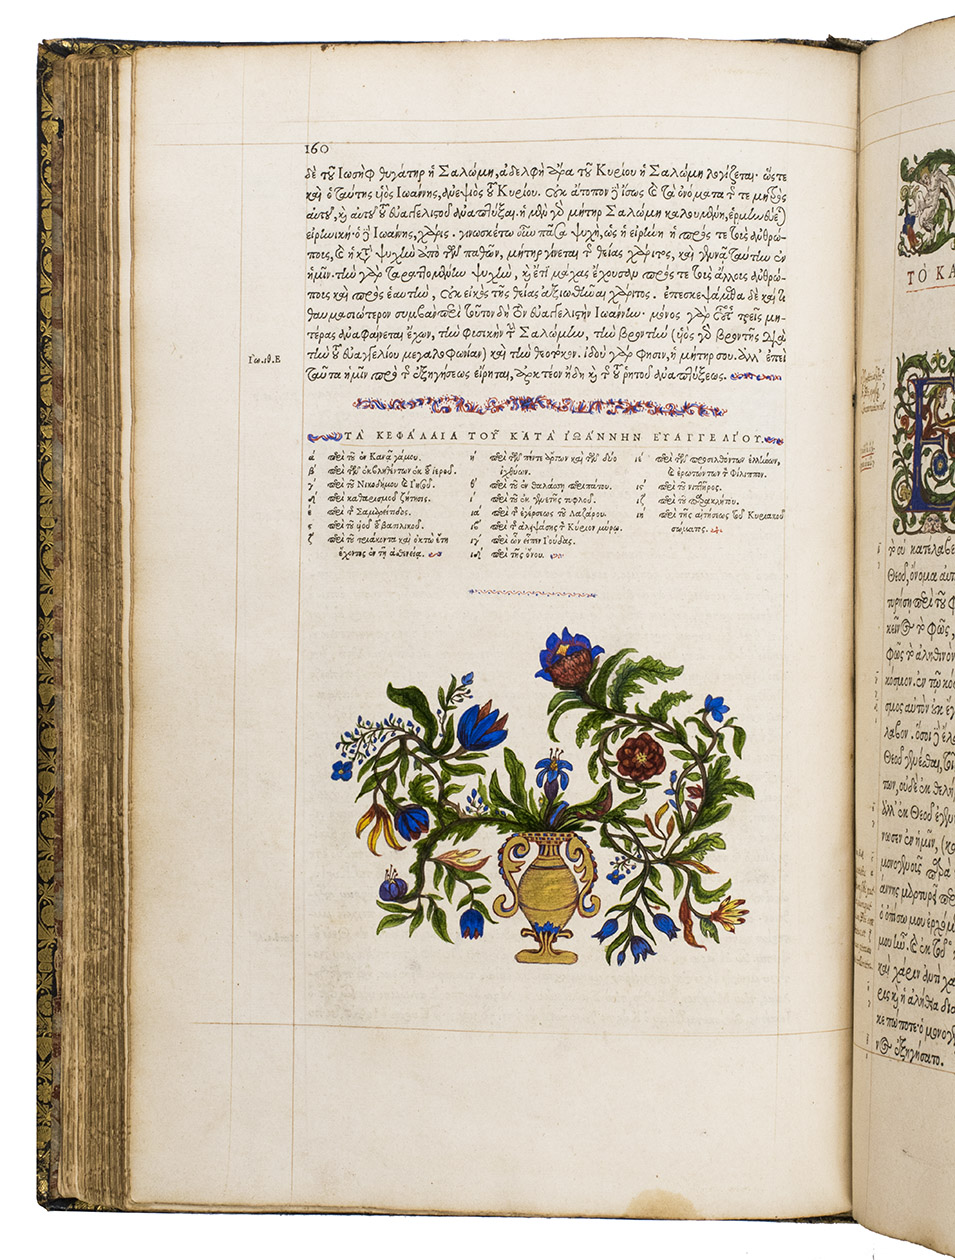 160
δὲ τοῦ Ἰωσὴφ θυγάτηρ ἡ Σαλώμη, ἀδελφὴ ἄρα τοῦ Κυρίου ἡ Σαλώμη λογίζεται· ὥστε
καὶ ὁ ταύτης υἱὸς Ἰωάννης, ἀνεψιὸς τοῦ Κυρίου. Οὐκ ἄτοπον δὲ ἴσως καὶ τὰ ὀνόματα τῆς τε μητρὸς
αὐτοῦ, καὶ αὐτοῦ τοῦ εὐαγγελιστοῦ ἀναπτύξαι. ἡ μὲν γὰρ μήτηρ Σαλώμη καλουμένη, ἑρμηνεύεται
εἰρηνική· ὁ δὲ Ἰωάννης, χάρις. γνωσκέτω οὖν πᾶσα ψυχὴ, ὡς ἡ εἰρήνη ἡ πρός τε τοὺς ἀνθρώ-
ποις, καὶ ἡ κατὰ ψυχὴν ἀπὸ τῶν παθῶν, μήτηρ γίνεται τῆς θείας χάριτος, καὶ γεννᾷ ταύτην ἐν
ἡμῖν. τὴν γὰρ ταραττομένην ψυχὴν, καὶ ἔτι μάχας ἔχουσαν πρός τε τοὺς ἄλλοις ἀνθρώ-
ποις καὶ πρὸς ἑαυτὴν, Οὐκ εἰκὸς τῆς θείας ἀξιωθῆναι χάριτος. ἐπεσκεψάμεθα δὲ καί τι
θαυμασιώτερον συμβὰν περὶ τοῦτον δὴ τὸν εὐαγγελιστὴν Ἰωάννην· μόνος γὰρ οὗτος τρεῖς μη-
τέρας ἀναφαίνεται ἔχων, τὴν φυσικὴν τὴν Σαλώμην, τὴν βροντὴν (υἱὸς γὰρ βροντῆς διὰ
τὴν τοῦ εὐαγγελίου μεγαλοφωνίαν) καὶ τὴν θεοτόκον. ἰδοὺ γάρ φησιν, ἡ μήτηρ σου. ἀλλ' ἐπεὶ
ταῦτα ἡμῖν πρὸ τῆς ἐξηγήσεως εἴρηται, ἀρκτέον ἤδη καὶ τῆς τοῦ ῥητοῦ ἀναπτύξεως.
Ἰω. ιθ.
ΤᾺ ΚΕΦΆΛΑΙΑ ΤΟΥ͂ ΚΑΤᾺ ἸΩΆΝΝΗΝ ΕΥ̓ΑΓΓΕΛΊΟΥ.
ά περὶ τοῦ ἐν Κανᾷ γάμου.
β΄ περὶ τῶν ἐκβληθέντων ἐκ τοῦ ἱεροῦ.
γ΄ περὶ τοῦ Νικοδήμου καὶ Ἰησοῦ.
δ΄ περὶ καθαρισμοῦ ζήτησις.
έ περὶ τῆς Σαμαρείτιδος.
ϛ περὶ τοῦ υἱοῦ τοῦ βασιλικοῦ.
ζ περὶ τοῦ τριάκοντα καὶ ὀκτὼ ἔτη
ἔχοντος ἐν τῇ ἀσθενείᾳ.
ή περὶ τῶν πέντε ἄρτων καὶ τῶν δύο
ἰχθύων.
θ΄ περὶ τοῦ ἐν θαλάσσῃ περιπάτου.
ί περὶ τοῦ ἐκ γενετῆς τυφλοῦ.
ιά περὶ τῆς ἐγέρσεως τοῦ Λαζάρου.
ιβ΄ περὶ τῆς ἀλειψάσης τὸν Κύριον μύρῳ.
ιγ΄ περὶ ὧν εἶπεν Ἰούδας.
ιδ΄ περὶ τῆς ὄνου.
ιέ περὶ τῶν προσελθόντων ἑλλήνων,
καὶ ἐρωτώντων τὸν Φίλιππον.
ιϛ περὶ τοῦ νιπτῆρος.
ιζ περὶ τοῦ παρακλήτου.
ιή περὶ τῆς αἰτήσεως τοῦ Κυριακοῦ
σώματος.
ΤῸ ΚΑ
τὸ οὐ κατέλαβε
Θεοῦ, ὄνομα αὐτ
τυρήσῃ περὶ τοῦ φ
κεῖνος τὸ φῶς,
φῶς τὸ ἀληθινὸν
κόσμον. ἐν τῷ κό
σμος αὐτὸν οὐκ ἔγ
λαβον. ὅσοι δὲ ἔλα
Θεοῦ γενέσθαι, τοῖ
των, οὐδὲ ἐκ θελή
ἀλλ' ἐκ Θεοῦ ἐγεν
νωσεν ἐν ἡμῖν, (κα
μονογενοῦς παρὰ
άννης μαρτυρεῖ περ
ὁ ὀπίσω μου ἐρχόμ
μου ἦν. καὶ ἐκ τοῦ
καὶ χάριν ἀντὶ χά
ρις καὶ ἡ ἀλήθεια διὰ
κε πώποτε· ὁ μονογ
νος ἐξηγήσατο.